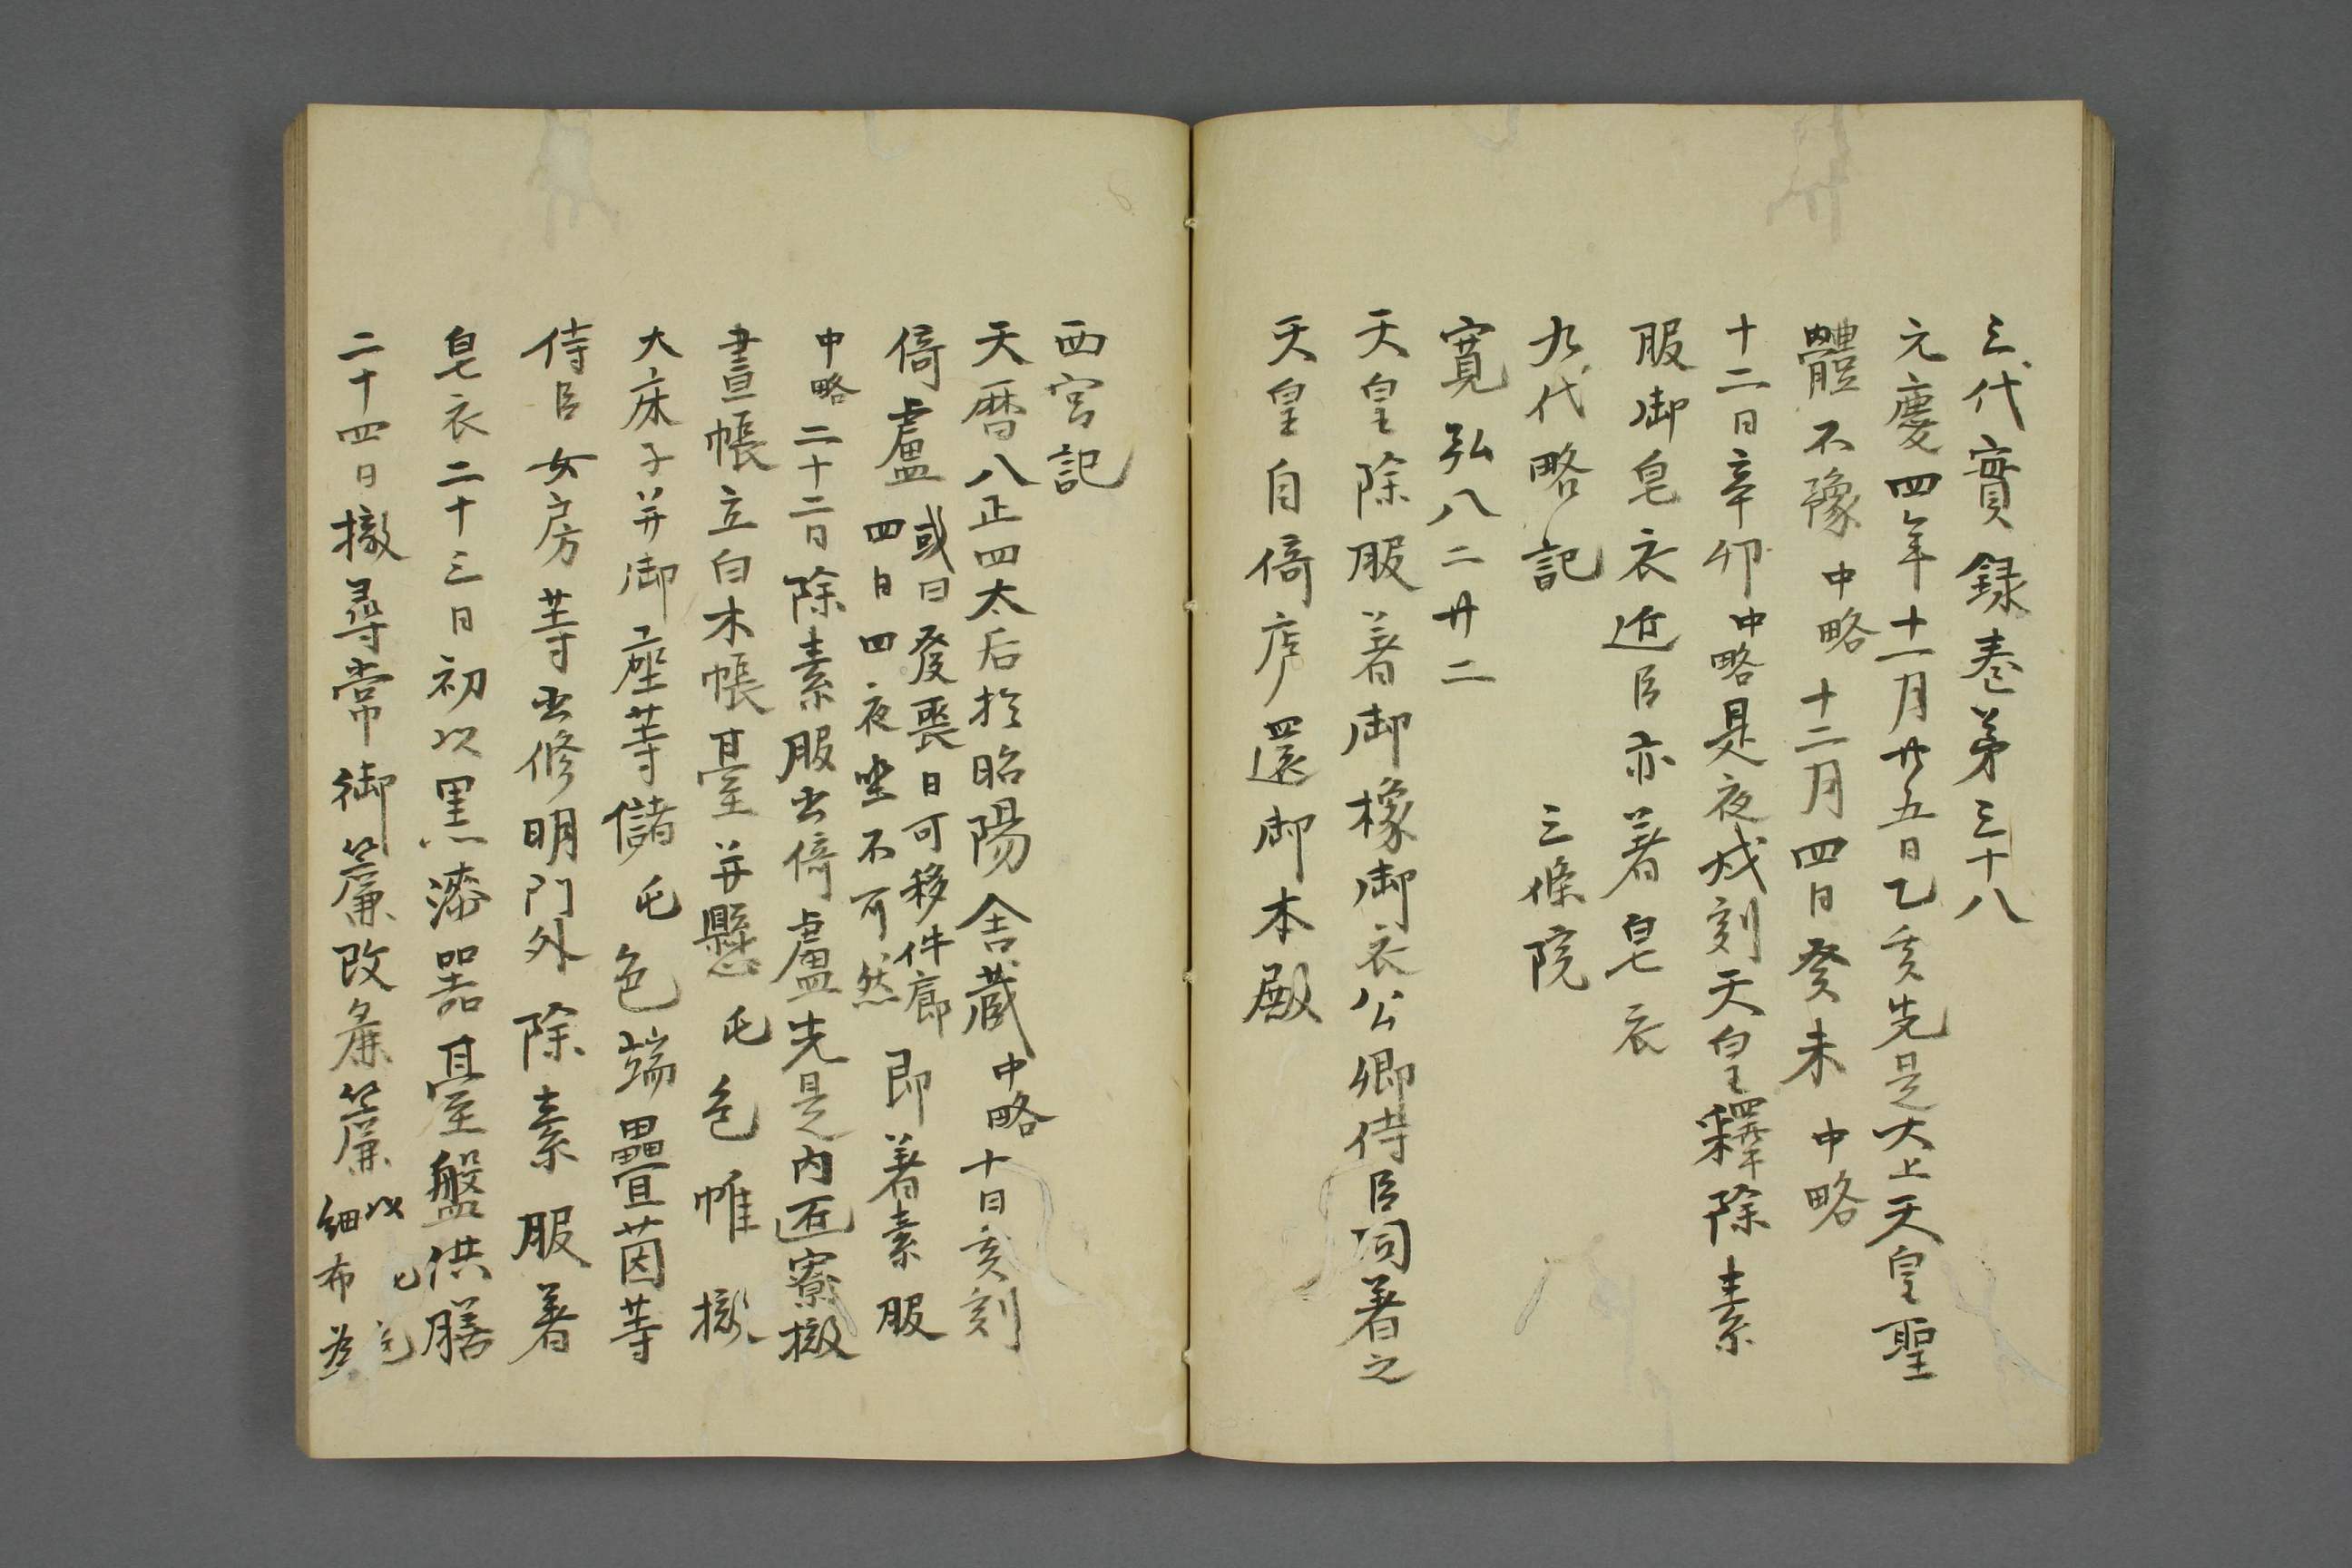 三代實録卷第三十八
元慶四年十一月廿五日乙亥先是大上天皇聖
體不豫中略十二月四日癸未中略
十二日辛卯中略是夜戌刻天皇釋除素
服御皂衣近臣亦著皂衣
九代略記　三條院
寛弘八二廿二
天皇除服著御橡御衣公卿侍臣同著之
天皇自倚庐還御本殿
西宮記
天暦八正四太后於昭陽舎蔵中略十日亥刻
倚盧或曰發喪日可移件廊四日四夜坐不可然即著素服
中略二十二日除素服出倚盧先是内匠寮撤
晝帳立白木帳臺并懸乇色帷撤
大床子并御座等儲乇色端疊茵等
侍臣女房等出修明門外除素服著
皂衣二十三日初以黒漆器臺盤供膳
二十四日撤尋常御簾改粛簾以乇色細布為